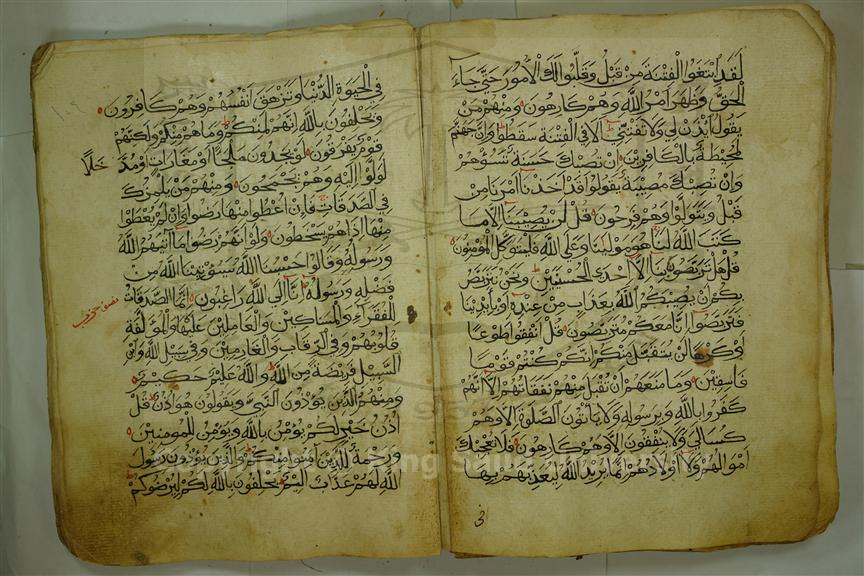 لقد ابتغوا الفتنة من قبل وقلبوا لك الأمور حتى جاء
الحق وظهر أمر الله وهم كارهون ومنهم من
يقول ايذن لي ولا تفتني ألا في الفتنة سقطوا وإن جهنم
لمحيطة بالكافرين إن تصبك حسنة تسؤهم
وإن تصبك مصيبة يقولوا قد أخذنا أمرنا من
قبل ويتولوا وهم فرحون قل لن يصيبنا إلا ما
كتب الله لنا هو مولينا وعلى الله فليتوكل المؤمنون
قل هل تربصون بنا إلا إحدى الحسنيين ونحن نتربص
بكم أن يصيبكم الله بعذاب من عنده أو بأيدينا
فتربصوا إنا معكم متربصون قل أنفقوا طوعا
أو كرها لن يتقبل منكم إنكم كنتم قوما
فاسقين وما منعهم أن تقبل منهم نفقاتهم إلا أنهم
كفروا بالله وبرسوله ولا يأتون الصلوة إلا وهم
كسالى ولا ينفقون إلا وهم كارهون فلا تعجبك
أموالهم ولا أولادهم إنما يريد الله ليعذبهم بها
في
في الحيوة الدنيا وتزهق أنفسهم وهم كافرون
ويحلفون بالله إنهم لمنكم وما هم منكم ولكنهم
قوم يفرقون لو يجدون ملجأ أو مغارات أو مدخلا
لولوا إليه وهم يجمحون ومنهم من يلمزك
في الصدقات فإن أعطوا منها رضوا وإن لم يعطوا
منها إذا هم يسخطون ولو أنهم رضوا ما آتيهم الله
ورسوله وقالوا حسبنا الله سيؤتينا الله من
فضله ورسوله إنا إلى الله راغبون إنما الصدقات
للفقراء والمساكين والعاملين عليها والمؤلفة
قلوبهم وفي الرقاب والغارمين وفي سبيل الله وابن
السبيل فريضة من الله والله عليم حكيم
ومنهم الذين يؤذون النبي ويقولون هو أذن قل
أذن خير لكم يؤمن بالله ويؤمن للمؤمنين
ورحمة للذين آمنوا منكم والذين يؤذون رسول
الله لهم عذاب أليم يحلفون بالله لكم ليرضوكم